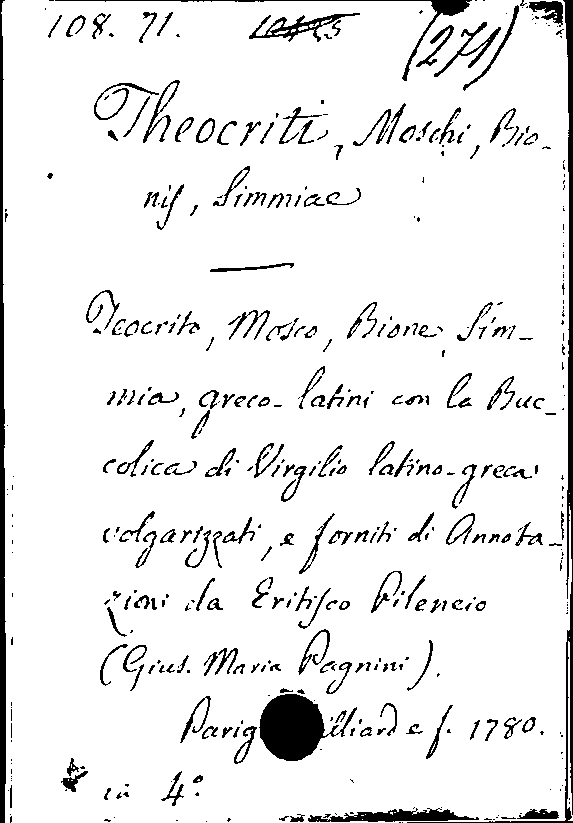 108. 71. (271)
Theocriti, Moschi, Bio-
nis, Simmiae
Teocrito, Mosco, Bione, Sim-
mia, greco-latini con la Buc-
colica di Virgilio latino-greca
volgarizzati, e forniti di Annota-
zioni da Eritisco Pilenejo
(Gius. Maria Pagnini).
e f. 1780.
in 4°.